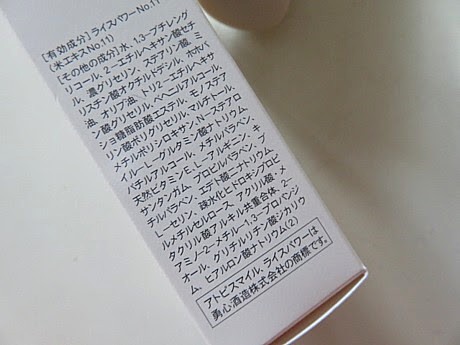 [有効成分]ライスパワーNo.11
(米エキスNo.11)
[その他の成分]水、1,3-ブチレング
リコール、2-エチルヘキサン酸セチ
ル、濃グリセリン、ステアリン酸、ミ
リスチン酸オクチルドデシル、ホホバ
油、オリブ油、トリ2-エチルヘキサ
ン酸グリセリル、ベヘニルアルコール、
ショ糖脂肪酸エステル、モノステア
リン酸ポリグリセリル、マルチトール、
メチルポリシロキサン、N-ステアロ
イル-L-グルタミン酸ナトリウム、
バチルアルコール、メチルパラベン、
天然ビタミンE、L-アルギニン、キ
サンタンガム、プロピルパラベン、ブ
チルパラベン、エデト酸二ナトリウム、
L-セリン、疎水化ヒドロキシプロピ
ルメチルセルロース、アクリル酸・メ
タクリル酸アルキル共重合体、2-
アミノ-2-メチル-1,3-プロパンジ
オール、グリチルリチン酸ジカリウ
ム、ヒアルロン酸ナトリウム(2)
アトピスマイル、ライスパワーは
勇心酒造株式会社の商標です。